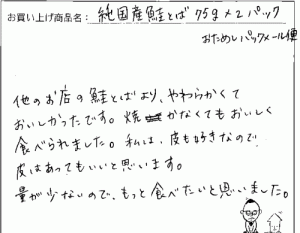 お買い上げ商品名: 純国産鮭とば 75g×2パック
おためしパックメール便
他のお店の鮭とばより、やわらかくて
おいしかったです。焼かなくてもおいしく
食べられました。私は、皮も好きなので
皮はあってもいいと思います。
量が少ないので、もっと食べたいと思いました。